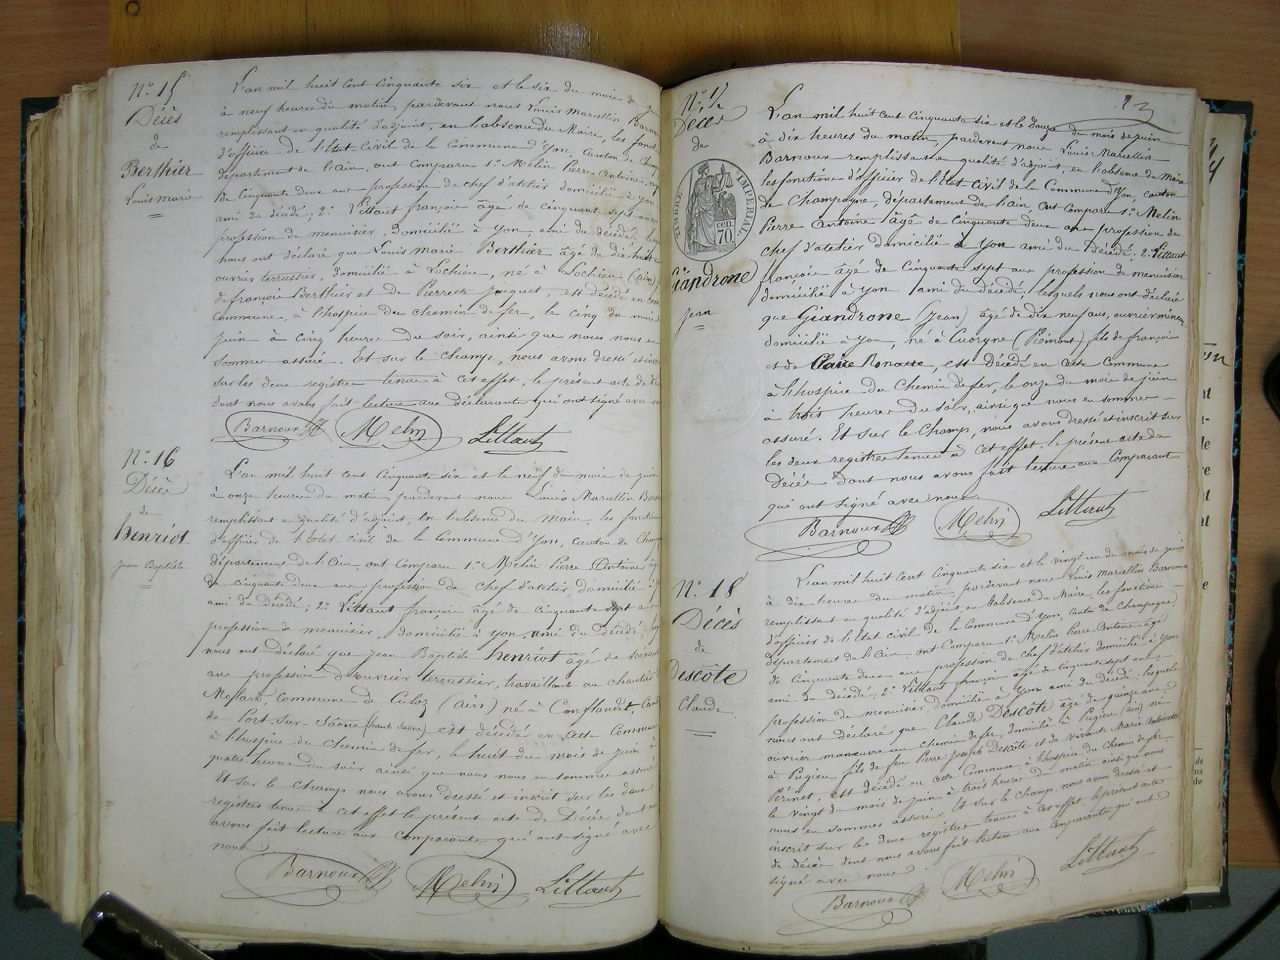 N.º 15
Décès
de
Berthier
Louis Marie
L'an mil huit cent cinquante six et le six du mois de
à neuf heures du matin, pardevant nous Louis Marcellin Barnoux
remplissant en qualité d'adjoint, en l'absence du Maire, les fonct
d'officier de l'État Civil de la Commune d'Yon, canton de Cha
département de l'ain, ont comparu 1.º Melin Pierre Antoine
de Cinquante deux ans profession de chef d'atelier domicilié à
ami du décédé, 2.º Littaut françois âgé de cinquant sept ans
profession de menuisier, domicilié à Yon, ami du décédé,
nous ont déclaré que Louis Marie Berthier âgé de dix huit
ouvrier terrassier, domicilié à Lochieu, né à Lochieu (ain)
de françois Berthier et de Pierrette Jacquet, est décédé en
commune, à l'hospice du chemin de fer, le cinq du mois
juin à cinq heures du soir, ainsi que nous nous en
sommes assuré. Et sur le champ, nous avons dressé et
sur les deux registres tenus à cet effet, le présent acte de
dont nous avons fait lecture aux déclarants qui ont signé avec
Barnoux Melin Littaut
N.º 16
Décès
de
henriot
jean Baptiste
L'an mil huit cent cinquante six et le neuf du mois de juin
à onze heures du matin pardevant nous Louis Marcellin Barn
remplissant en qualité d'adjoint, en l'absence du Maire, les fonction
d'officier de l'état civil de la Commune d'Yon, canton de Champ
département de l'Ain, ont comparu 1.º Melin Pierre Antoine
de cinquante deux ans profession de Chef d'atelier, domicilié à
ami du décédé; 2.º Littaut françois âgé de cinquante sept ans
profession de menuisier, domicilié à Yon, ami du décédé,
nous ont déclaré que jean Baptiste henriot âgé de
ans profession d'ouvrier terrassier, travaillant au chantier
Commune de Culoz (ain) né à Conflandey, Can
de Port sur Saône (haute Saône) est décédé en cette Commune
à l'hospice du Chemin de fer, le huit du mois de juin à
quatre heures du soir ainsi que nous nous en sommes assuré
Et sur le champ nous avons dressé et inscrit sur les deux
registres tenus à cet effet le présent acte de Décès dont nous
avons fait lecture aux Comparants qui ont signé avec
nous
Barnoux Melin Littaut
23
N.º 17
Décès
de
TIMBRE IMPÉRIAL
CENT. 70
Giandrone
jean
L'an mil huit cent cinquante six et le douze du mois de juin
à dix heures du matin, pardevant nous Louis Marcellin
Barnoux remplissant en qualité d'adjoint, en l'absence du Maire
les fonctions d'officier de l'État Civil de la Commune d'Yon, canton
de Champagne, département de l'ain, ont comparu 1.º Melin
Pierre Antoine âgé de Cinquante deux ans profession de
chef d'atelier domicilié à Yon ami du décédé, 2.º Littaut
françois âgé de Cinquante sept ans profession de menuisier
domicilié à Yon ami du décédé, lesquels nous ont déclaré
que Giandrone (Jean) âgé de dix neuf ans, ouvrier mineur
domicilié à Yon, né à Cuorgne (Piémont) fils de françois
et de Claire Bonatte, est Décédé en cette Commune
à l'hospice du Chemin de fer, le onze du mois de juin
à trois heures du soir, ainsi que nous en sommes
assuré. Et sur le champ, nous avons dressé et inscrit sur
les deux registres tenus à cet effet, le présent acte de
Décès dont nous avons fait lecture aux Comparant
qui ont signé avec nous
Barnoux Melin Littaut
N.º 18
Décès
de
Descôte
Claude
L'an mil huit Cent cinquante six et le vingt un du mois de juin
à dix heures du matin, pardevant nous Louis Marcellin Barnoux
remplissant en qualité d'adjoint, en l'absence du Maire, les fonctions
d'officier de l'État Civil de la Commune d'Yon, Canton de Champagne,
département de l'Ain, ont Comparu 1.º Melin Pierre Antoine âgé
de Cinquante deux ans profession de Chef d'atelier domicilié à Yon
ami du décédé, 2.º Littaut françois âgé de cinquante sept ans
profession de menuisier domicilié à Yon ami du décédé, lesquels
nous ont déclaré que (Claude) Descôte âgé de quinze ans,
ouvrier manœuvre au chemin de fer, domicilié à Pugieu (ain) né
à Pugieu fils de feu Pierre Joseph Descôte et de vivante Marie
Périnet, est décédé en cette Commune à l'hospice du Chemin de fer
le vingt du mois de juin à trois heures du matin ainsi que nous
nous en sommes assuré. Et sur le champ nous avons dressé et
inscrit sur les deux registres tenus à cet effet, le présent acte
de décès dont nous avons fait lecture aux Comparants qui ont
signé avec nous
Barnoux Melin Littaut